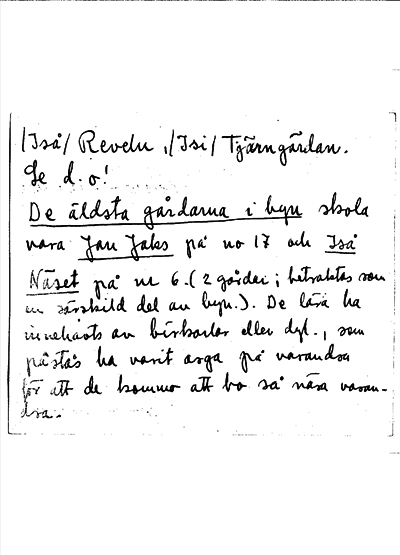 /Iså/ Revelu, /Isi/ Tjärngårdan.
Se d. o!
De äldsta gårdarna i byn skola
vara Jan Jaks på no 17 och Iså
Näset på nr 6. (2 gårdar; betraktas som
en särskild del av byn.). De lära ha
innehavts av birkarlar eller dyl., som
påstås ha varit arga på varandra
för att de kommo att bo så nära varan-
dra.